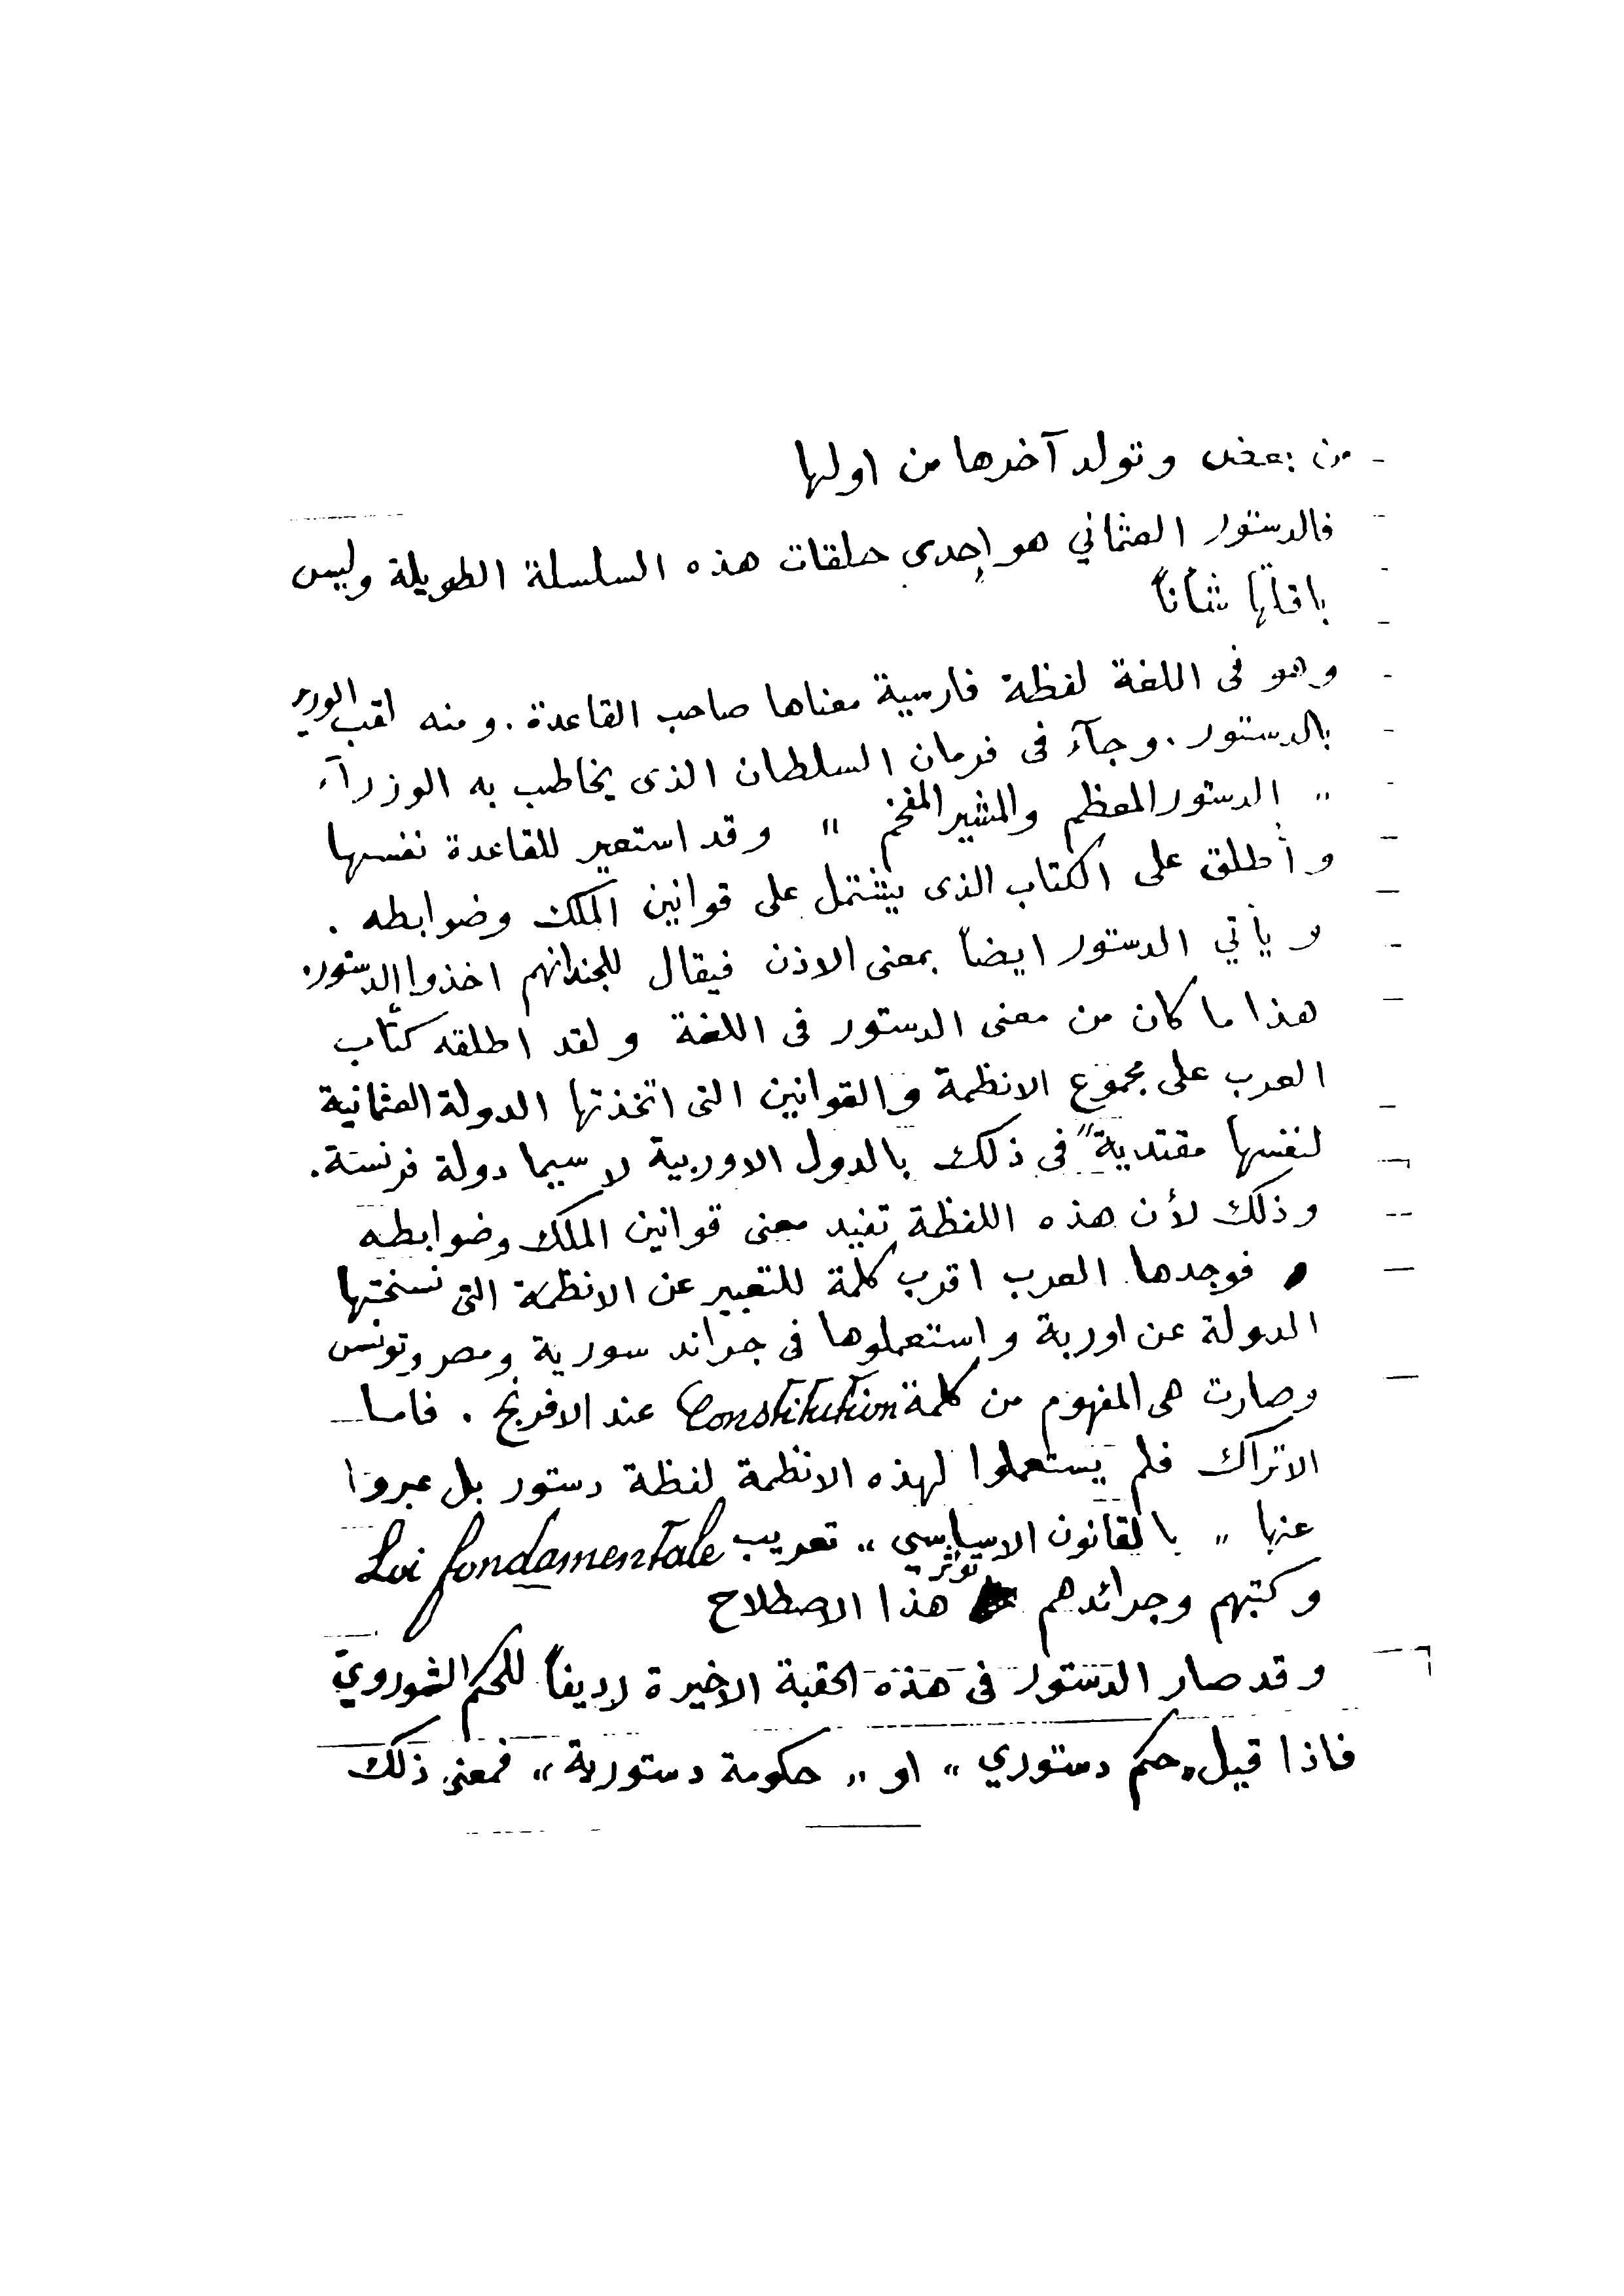 من بعض وتولد آخرها من اولها
فالدستور العثماني هو إحدى حلقات هذه السلسلة الطويلة وليس
باقلّها شأناً
وهو فى اللغة لفظة فارسية معناها صاحب القاعدة . ومنه لقب الوزير
بالدستور . وجآء فى فرمان السلطان الذى يخاطب به الوزرآء
" الدستور المعظم والمشير المفخم " وقد استعير للقاعدة نفسها
وأطلق على الكتاب الذى يشتمل على قوانين الملك وضوابطه .
ويأتي الدستور ايضاً بمعنى الاذن فيقال للجند انهم اخذوا الدستور
هذا ما كان من معنى الدستور فى اللغة ولقد اطلقه كتّاب
العرب على مجموع الانظمة والقوانين التى اتخذتها الدولة العثمانية
لنفسها مقتدية فى ذلك بالدول الاوربية لاسيما دولة فرنسة .
وذلك لأن هذه اللفظة تفيد معنى قوانين الملك وضوابطه
فوجدها العرب اقرب كلمة للتعبير عن الانظمة التى نسختها
الدولة عن اوربة واستعملوها فى جرائد سورية ومصر وتونس
وصارت هى المفهوم من كلمة Constitution عند الافرنج . فاما
الاتراك فلم يستعملوا لهذه الانظمة لفظة دستور بل عبروا
عنها " بالقانون الاساسي " تعريب Loi fondamentale
وكتبهم وجرائدهم تؤثر هذا الاصطلاح
وقد صار الدستور فى هذه الحقبة الاخيرة رديفاً للحكم الشوروي
فاذا قيل " حكم دستوري " او " حكومة دستورية " فمعنى ذلك